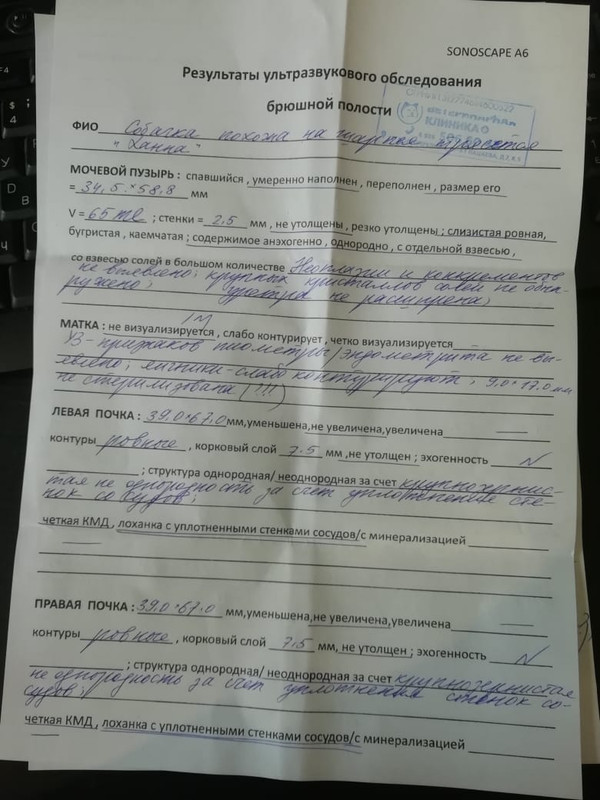 SONOSCAPE A6
Результаты ультразвукового обследования
брюшной полости
КЛИНИКА
ФИО Собачка похожа на шарпея
"Ханна"
МОЧЕВОЙ ПУЗЫРЬ : спавшийся , умеренно наполнен , переполнен , размер его
= 34,5 × 58,8 мм
V = 65 ml ; стенки = 2.5 мм , не утолщены , резко утолщены ; слизистая ровная,
бугристая , каемчатая ; содержимое анэхогенно , однородно , с отдельной взвесью ,
со взвесью солей в большом количестве Неоплазии и конкрементов
не выявлено; крупных кристаллов солей не обна-
ружено; уретра не расширена;
МАТКА : не визуализируется , слабо контурирует , четко визуализируется
УЗ-признаков пиометры/эндометрита не вы-
явлено; яичники-слабо контурируют ; 9,0 × 17,0 мм
не стерилизована (!!!)
ЛЕВАЯ ПОЧКА : 39,0 × 67,0 мм,уменьшена,не увеличена,увеличена
контуры ровные , корковый слой 7.5 мм ,не утолщен ; эхогенность N
; структура однородная/ неоднородная за счет крупнозернис-
тая не однородность за счет уплотнения сте-
нок сосудов;
четкая КМД , лоханка с уплотненными стенками сосудов/с минерализацией
ПРАВАЯ ПОЧКА : 39,0 × 67,0 мм,уменьшена,не увеличена,увеличена
контуры ровные , корковый слой 7.5 мм, не утолщен ; эхогенность N
; структура однородная/ неоднородная за счет крупнозернистая
не однородность за счет уплотнения стенок со-
судов;
четкая КМД , лоханка с уплотненными стенками сосудов/с минерализацией